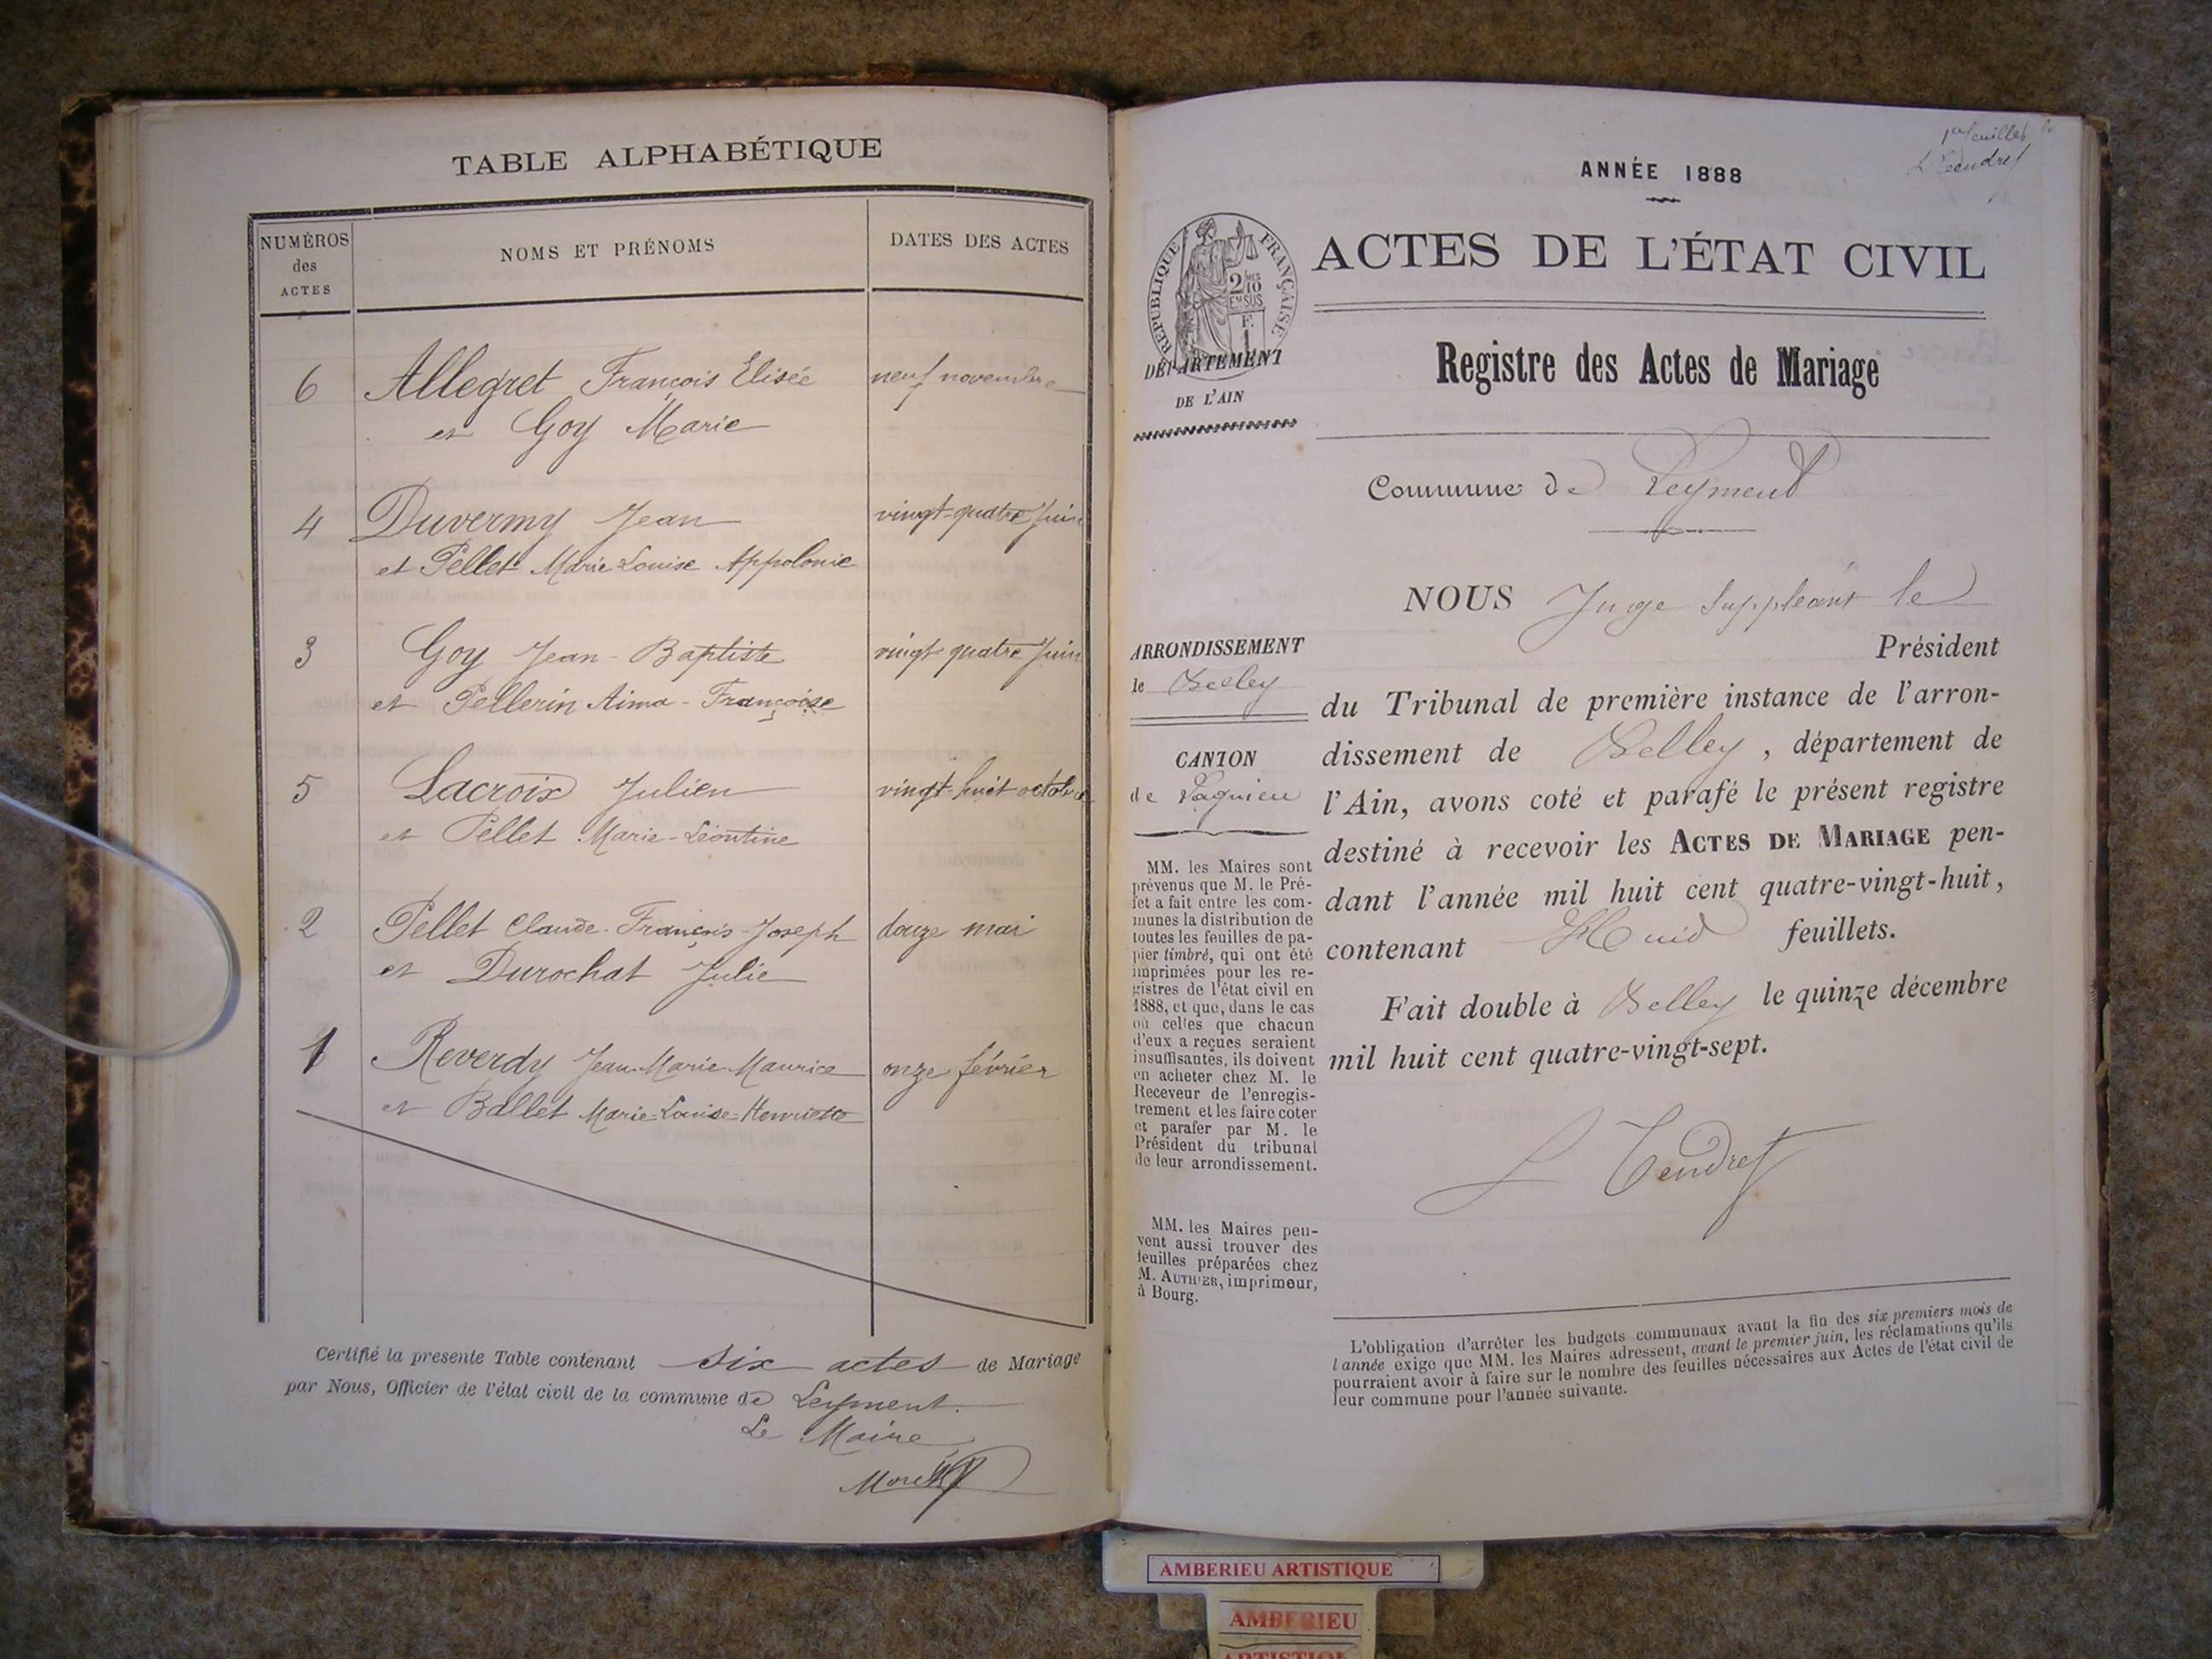 TABLE ALPHABÉTIQUE
NUMÉROS
des
ACTES
NOMS ET PRÉNOMS
DATES DES ACTES
6 Allegret François Elisée neuf novembre
et Goy Marie
4 Duvermy Jean vingt-quatre Juin
et Pellet Marie Louise Appolonie
3 Goy Jean-Baptiste vingt quatre Juin
et Pellerin Aima-Françoise
5 Lacroix Julien vingt-huit octobre
et Pellet Marie-Léontine
2 Pellet Claude-François-Joseph douze mai
et Durochat Julie
1 Reverdy Jean Marie Maurice onze février
et Ballet Marie-Louise-Henriette
Certifié la presente Table contenant six actes de Mariage
par Nous, Officier de l'état civil de la commune de Leyment.
Le Maire
1er feuillet
L Tendret
ANNÉE 1888
RÉPUBLIQUE FRANÇAISE
2/10
EN SUS
F.
1
ACTES DE L'ÉTAT CIVIL
DÉPARTEMENT
DE L'AIN
Registre des Actes de Mariage
Commune de Leyment
NOUS Juge Suppléant le
Président
du Tribunal de première instance de l'arron-
dissement de Belley, département de
l'Ain, avons coté et parafé le présent registre
destiné à recevoir les ACTES DE MARIAGE pen-
dant l'année mil huit cent quatre-vingt-huit,
contenant Huit feuillets.
Fait double à Belley le quinze décembre
mil huit cent quatre-vingt-sept.
L Tendret
ARRONDISSEMENT
de Belley
CANTON
de Lagnieu
MM. les Maires sont
prévenus que M. le Pré-
fet a fait entre les com-
munes la distribution de
toutes les feuilles de pa-
pier timbré, qui ont été
imprimées pour les re-
gistres de l'état civil en
1888, et que, dans le cas
où celles que chacun
d'eux a reçues seraient
insuffisantes, ils doivent
en acheter chez M. le
Receveur de l'enregis-
trement et les faire coter
et parafer par M. le
Président du tribunal
de leur arrondissement.
MM. les Maires peu-
vent aussi trouver des
feuilles préparées chez
M. AUTHIER, imprimeur,
à Bourg.
L'obligation d'arrêter les budgets communaux avant la fin des six premiers mois de
l'année exige que MM. les Maires adressent, avant le premier juin, les réclamations qu'ils
pourraient avoir à faire sur le nombre des feuilles nécessaires aux Actes de l'état civil de
leur commune pour l'année suivante.
AMBERIEU ARTISTIQUE
AMBERIEU
ARTISTIQUE